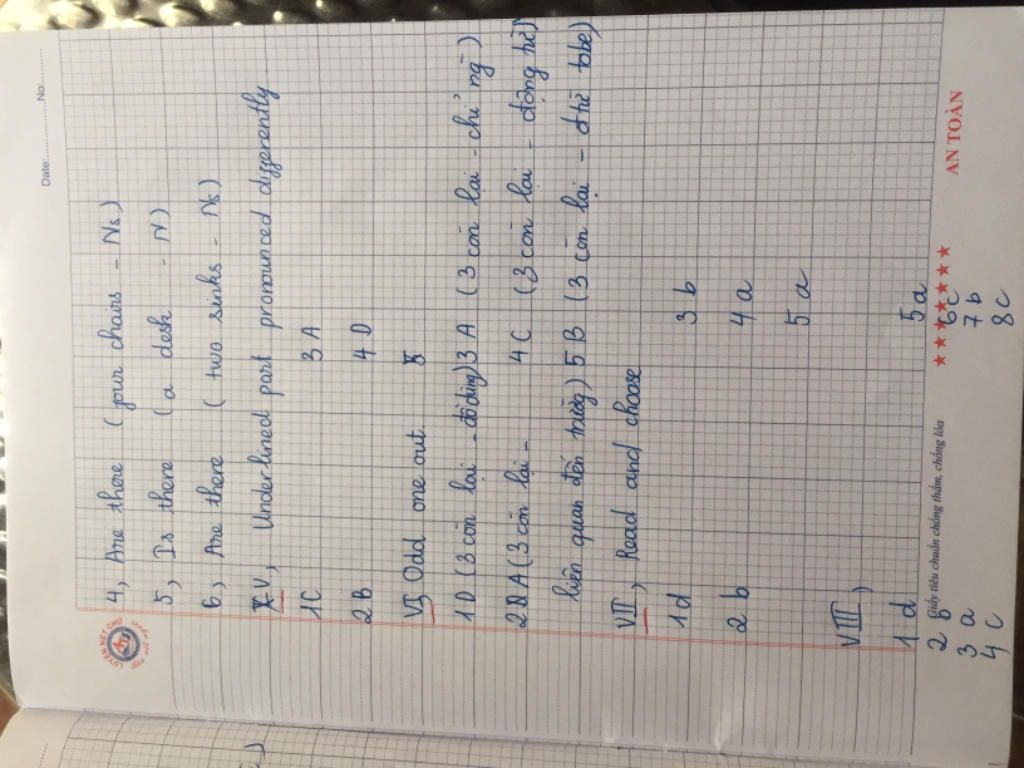 Date: ............No: ............
4, Are there (four chairs - Ns)
5, Is there (a desk - N)
6, Are there (two sinks - Ns)
V, Underlined part pronounced differently
1C 3A
2B 4D
VI, Odd one out
1D (3 còn lại - đồ dùng) 3A (3 còn lại - chỉ ng̃)
2A (3 còn lại - 4C (3 còn lại - động từ)
liên quan đến trường) 5B (3 còn lại - đtừ tobe)
VII, Read and choose
1d 3b
2b 4a
5a
VIII,
1d 5a
2b 6c
3a 7b
4c 8c
Giấy tiêu chuẩn chống thấm, chống lóa
AN TOÀN
LUYỆN NÉT CHỮ